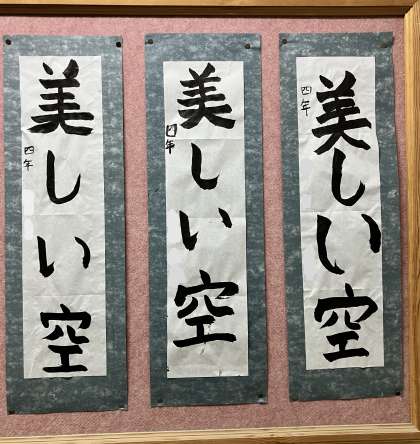 美しい空
四年
美しい空
四年
美しい空
四年